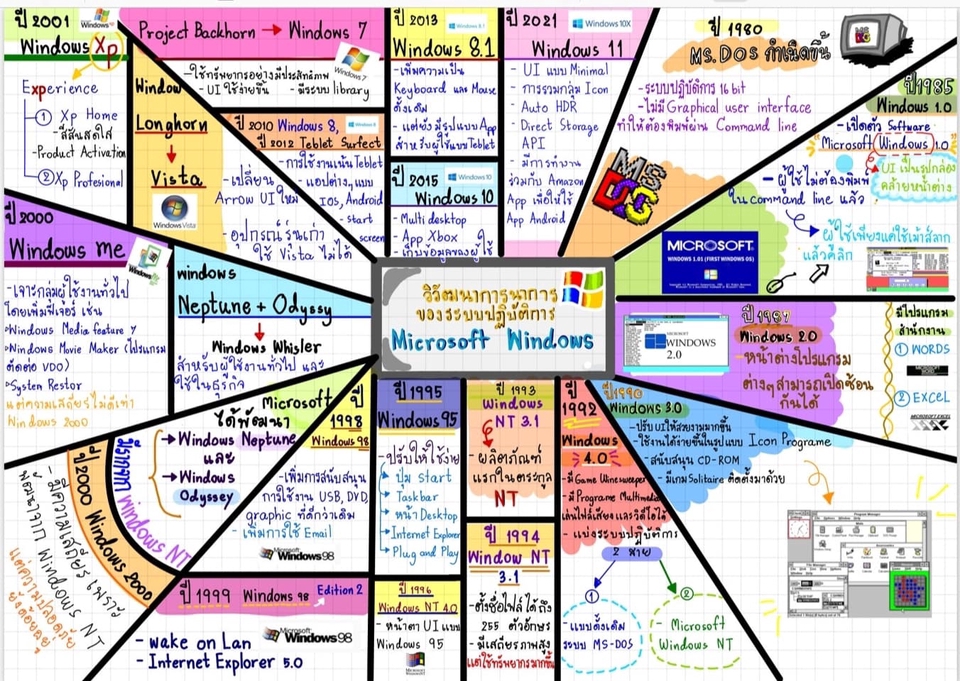 วิวัฒนาการนาการ
ของระบบปฏิบัติการ
Microsoft Windows
ปี 1980
MS.DOS กำเนิดขึ้น
-ระบบปฏิบัติการ 16 bit
-ไม่มี Graphical user interface
ทำให้ต้องพิมพ์ผ่าน Command line
MS
DOS
ปี1985
Windows 1.0
-เปิดตัว Software
Microsoft Windows 1.0
UI เป็นรูปกล่อง
คล้ายหน้าต่าง
- ผู้ใช้ไม่ต้องพิมพ์
ใน command line แล้ว
ผู้ใช้เพียงแค่ใช้เม้าส์ลาก
แล้วคลิก
MICROSOFT.
WINDOWS 1.01 (FIRST WINDOWS OS)
ปี 1987
Windows 2.0
-หน้าต่างโปรแกรม
ต่างๆสามารถเปิดซ้อน
กันได้
MICROSOFT
WINDOWS
2.0
มีโปรแกรม
สำนักงาน
① WORDS
② EXCEL
MICROSOFT EXCEL
ปี1990
Windows 3.0
-ปรับ UI ให้สวยงามมากขึ้น
-ใช้งานได้ง่ายขึ้นในรูปแบบ Icon Programe
-สนับสนุน CD-ROM
-มีเกมSolitaire ติดตั้งมาด้วย
ปี
1992
Windows
4.0
-มี Game Winesweeper
-มี Programe Multimedia
เล่นไฟล์เสียงและวีดีโอได้
-แบ่งระบบปฏิบัติการ
2 สาย
①
- แบบดั้งเดิม
ระบบ MS-DOS
②
- Microsoft
Windows NT
ปี 1993
Windows
NT 3.1
- ผลิตภัณฑ์
แรกในตระกูล
NT
ปี 1994
Window NT
3.1
-ตั้งชื่อไฟล์ได้ถึง
255 ตัวอักษร
-มีเสถียรภาพสูง
แต่ใช้ทรัพยากรมากขึ้น
ปี1995
Windows 95
-ปรับให้ใช้ง่าย
ปุ่ม Start
Taskbar
หน้า Desktop
Internet Explorer
Plug and Play
ปี 1996
Windows NT 4.0
-หน้าตา UI แบบ
Windows 95
ปี
1998
Windows 98
-เพิ่มการสนับสนุน
การใช้งาน USB, DVD,
graphic ที่ดีกว่าเดิม
-เพิ่มการใช้ Email
Microsoft
Windows98
ปี 1999 Windows 98 Edition 2
- wake on Lan
- Internet Explorer 5.0
Microsoft
Windows98
Microsoft
ได้พัฒนา
Windows Neptune
และ
Windows
Odyssey
ปี2000 Windows 2000
มีรากจาก Windows NT
-มีความเสถียร เพราะ
พัฒนาจาก Windows NT
windows
Neptune + Odyssy
Windows Whisler
สำหรับผู้ใช้งานทั่วไป และ
ใช้ในธุรกิจ
ปี 2000
Windows me
-เจาะกลุ่มผู้ใช้งานทั่วไป
โดยเพิ่มฟีเจอร์ เช่น
Windows Media feature 7
Windows Movie Maker (โปรแกรม
ตัดต่อ VDO)
System Restor
แต่ความเสถียรไม่ดีเท่า
Windows 2000
ปี 2001
Windows Xp
Experience
① Xp Home
- สีสันสดใส
-Product Activation
② Xp Profesional
Window
Longhorn
Vista
Windows Vista
-เปลี่ยน
Arrow UI ใหม่
-อุปกรณ์รุ่นเก่า
ใช้ Vista ไม่ได้
Project Backhorn → Windows 7
-ใช้ทรัพยากรอย่างมีประสิทธิภาพ
- UI ใช้ง่ายขึ้น
-มีระบบ library
Windows 7
ปี 2010 Windows 8,
ปี 2012 Teblet Surfect
-การใช้งานเน้นTeblet
-แอปต่างๆแบบ
IOS, Android
-start
screen
ปี 2013
Windows 8.1
Windows 8.1
-เพิ่มความเป็น
Keyboard และ Mouse
ดั้งเดิม
- แต่ยังมีรูปแบบApp
สำหรับผู้ใช้แบบTeblet
ปี 2015
Windows 10
Windows 10
-Multi desktop
- App Xbox ใช้
เก็บข้อมูลของผู้ใช้
ปี 2021
Windows 10X
Windows 11
- UI แบบ Minimal
- การรวมกลุ่ม Icon
- Auto HDR
- Direct Storage
API
- มีการทำงาน
ร่วมกับ Amazon
App เพื่อให้ใช้
App Android